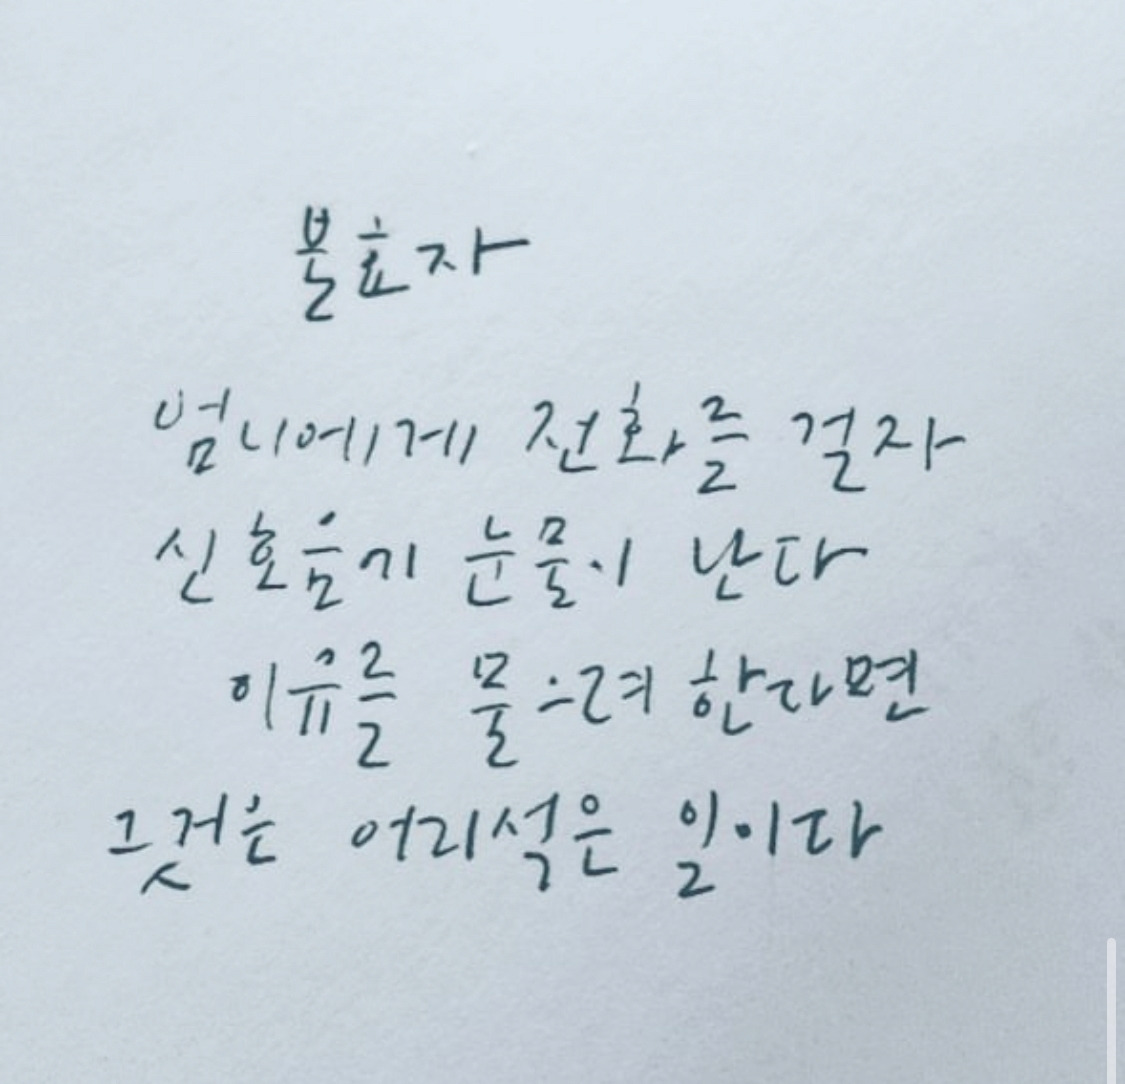 불효자
엄니에게 전화를 걸자
신호음기 눈물이 난다
이유를 물으려 한다면
그것은 어리석은 일이다